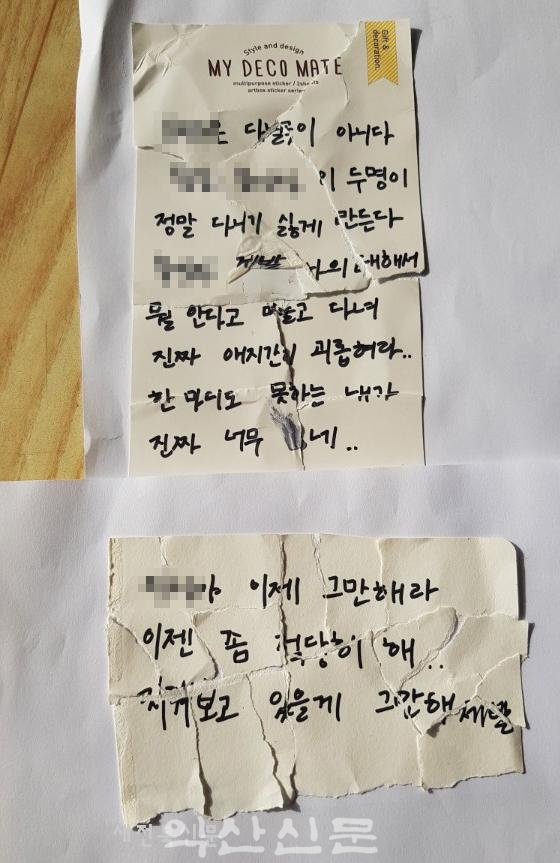 Style and design
MY DECO MATE
multipurpose sticker /
artbox sticker series
Gift &
decoration
다닐곳이 아니다
이 두명이
정말 다니기 싫게 만든다
제발 나의 대해서
뭘 안다고 떠들고 다녀
진짜 애지간히 괴롭혀라..
한마디도 못하는 내가
진짜 너무 네!..
야 이제 그만해라
이젠 좀 적당히 해..
지켜보고 있을게 그만해 제발
산신문